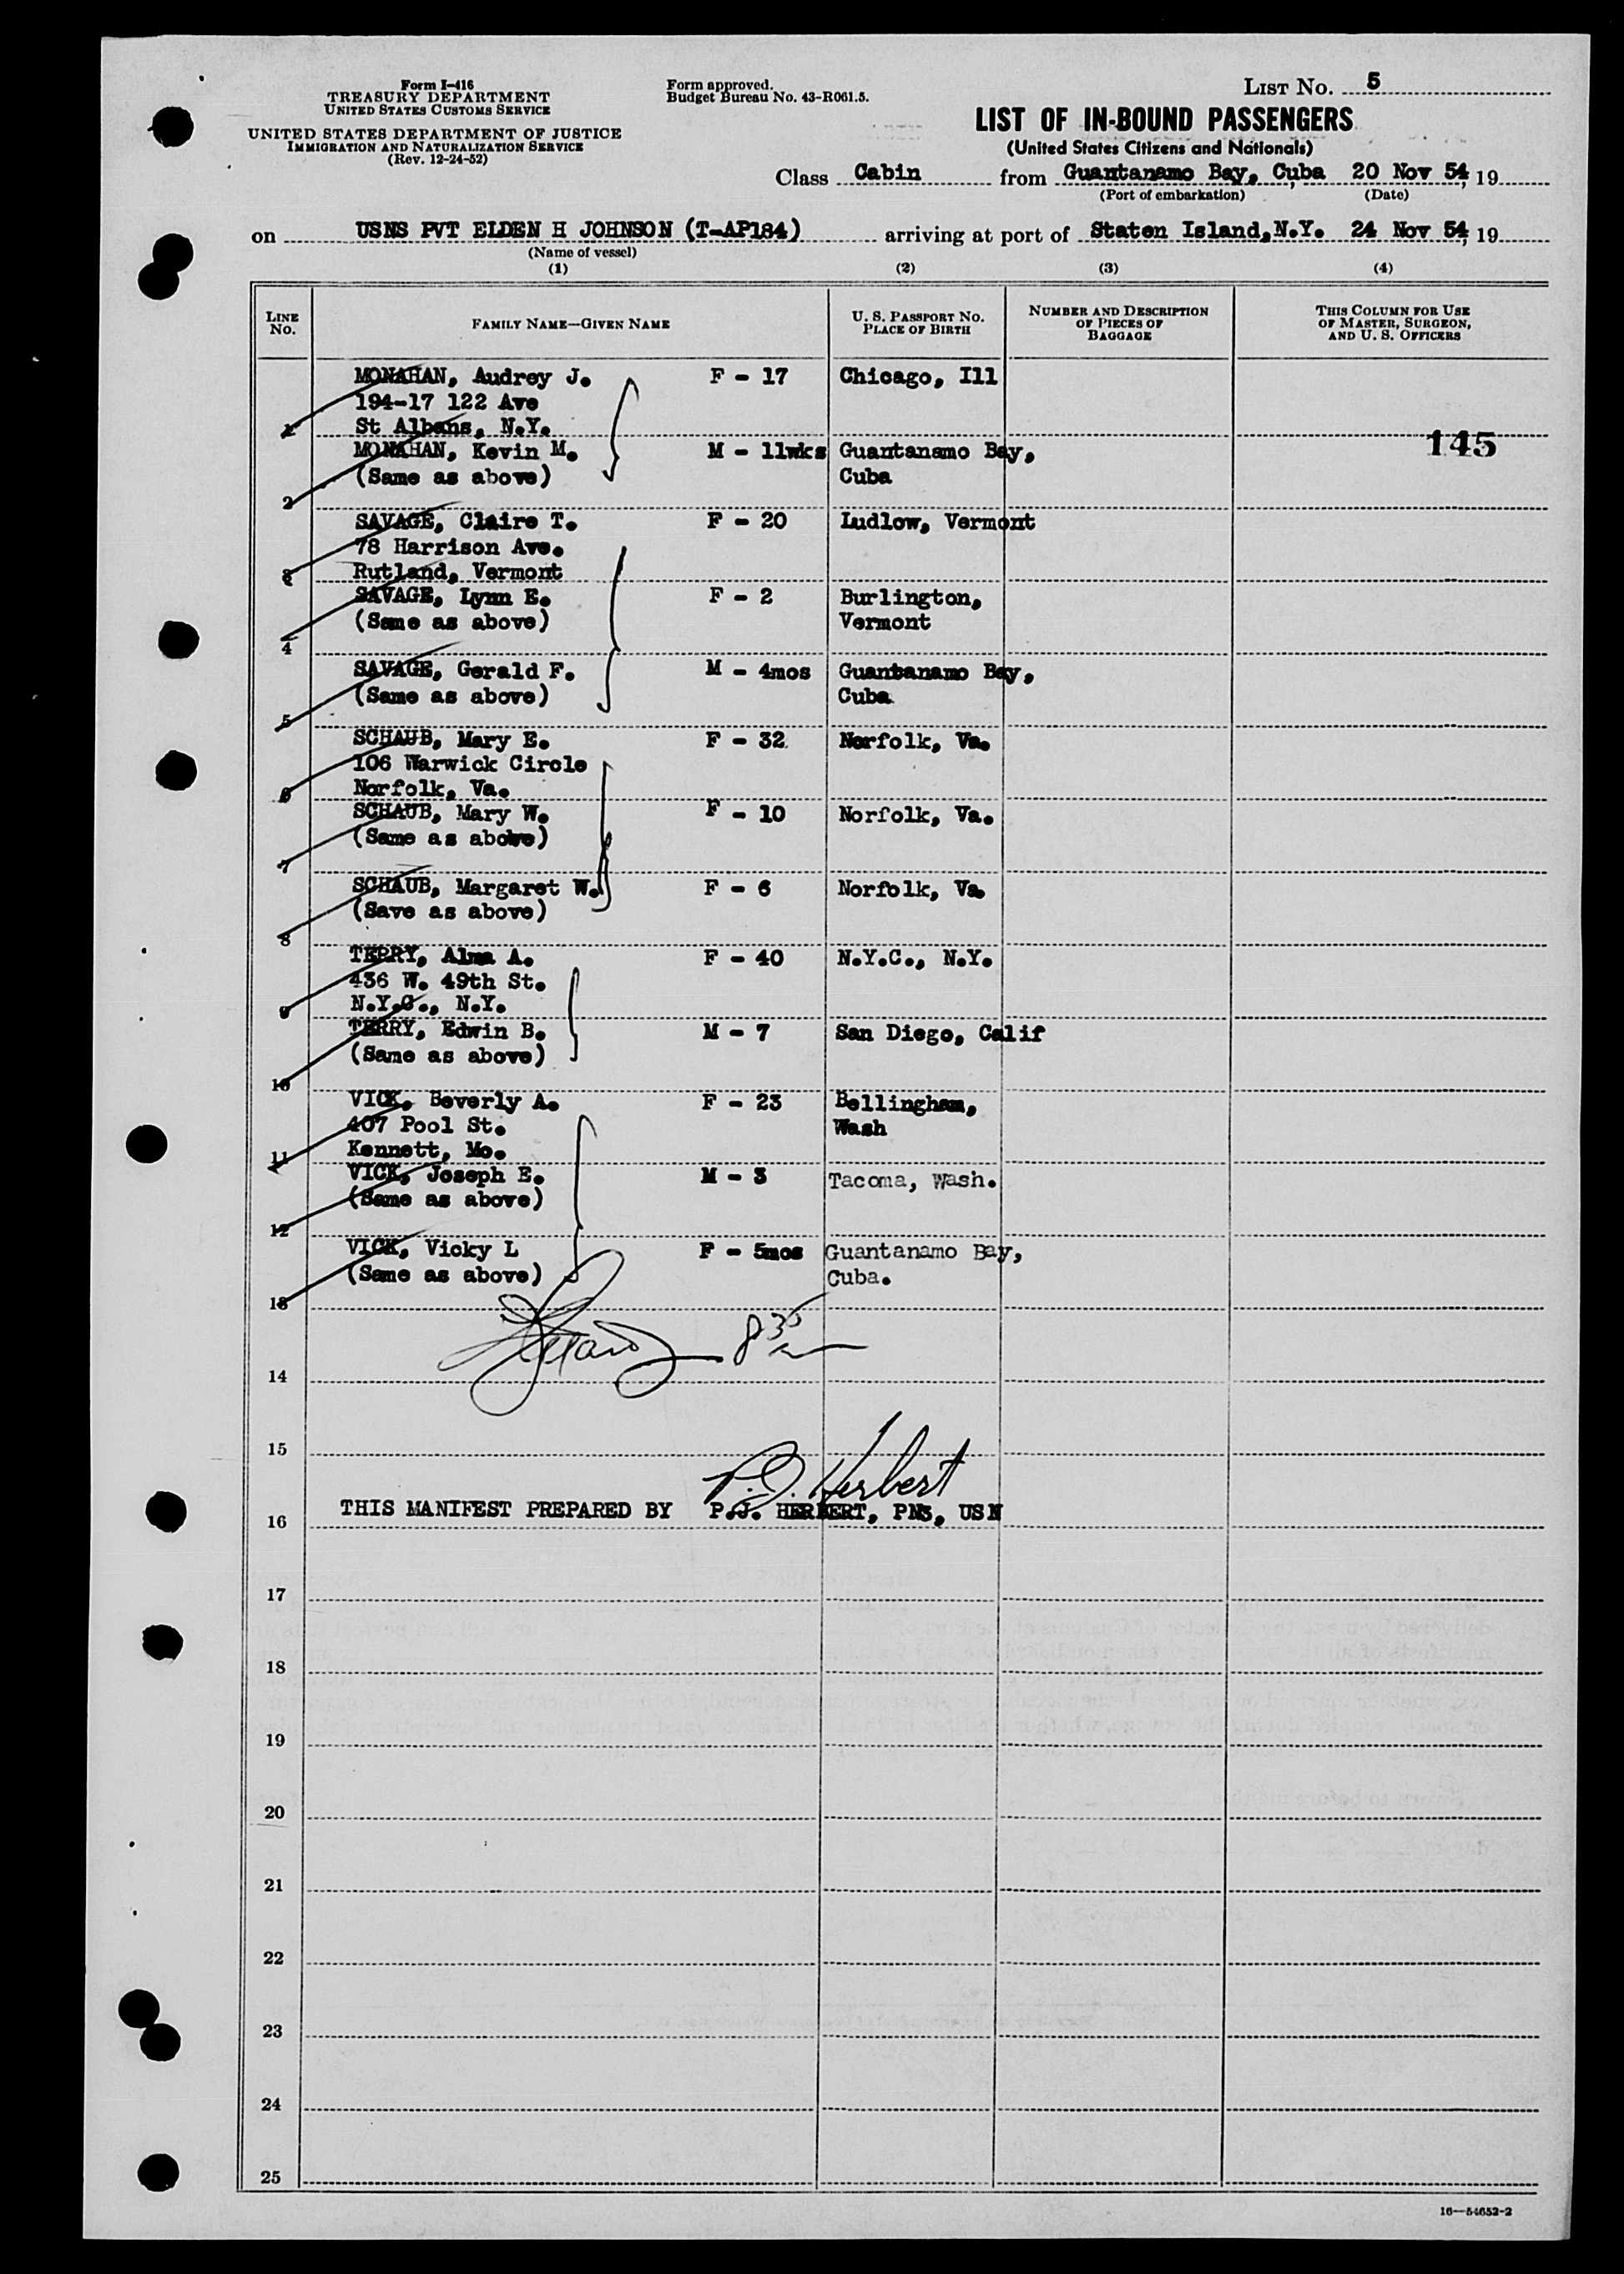 Form I-416
TREASURY DEPARTMENT
UNITED STATES CUSTOMS SERVICE
UNITED STATES DEPARTMENT OF JUSTICE
IMMIGRATION AND NATURALIZATION SERVICE
(Rev. 12-24-52)
Form approved.
Budget Bureau No. 43-R061.5.
LIST No. 5
LIST OF IN-BOUND PASSENGERS
(United States Citizens and Nationals)
Class Cabin from Guantanamo Bay, Cuba 20 Nov 54, 19
(Port of embarkation) (Date)
on USNS PVT ELDEN H JOHNSON (T-AP184) arriving at port of Staten Island, N.Y. 24 Nov 54, 19
(Name of vessel)
(1) (2) (3) (4)
LINE No. FAMILY NAME—GIVEN NAME U. S. PASSPORT No. PLACE OF BIRTH NUMBER AND DESCRIPTION OF PIECES OF BAGGAGE THIS COLUMN FOR USE OF MASTER, SURGEON, AND U. S. OFFICERS
MONAHAN, Audrey J. F - 17 Chicago, Ill
194-17 122 Ave
1 St Albans, N.Y.
145
MONAHAN, Kevin M. M - 11wks Guantanamo Bay,
(Same as above) Cuba
2
SAVAGE, Claire T. F - 20 Ludlow, Vermont
78 Harrison Ave.
3 Rutland, Vermont
SAVAGE, Lynn E. F - 2 Burlington,
(Same as above) Vermont
4
SAVAGE, Gerald F. M - 4mos Guantanamo Bay,
(Same as above) Cuba
5
SCHAUB, Mary E. F - 32 Norfolk, Va.
106 Warwick Circle
6 Norfolk, Va.
SCHAUB, Mary W. F - 10 Norfolk, Va.
(Same as above)
7
SCHAUB, Margaret W. F - 6 Norfolk, Va
(Save as above)
8
TERRY, Alma A. F - 40 N.Y.C., N.Y.
436 W. 49th St.
9 N.Y.C., N.Y.
TERRY, Edwin B. M - 7 San Diego, Calif
(Same as above)
10
VICK, Beverly A. F - 23 Bellingham,
407 Pool St. Wash
11 Kennett, Mo.
VICK, Joseph E. M - 3 Tacoma, Wash.
(Same as above)
12
VICK, Vicky L F - 5mos Guantanamo Bay,
(Same as above) Cuba.
13
835
14
15
P.J. Herbert
THIS MANIFEST PREPARED BY P.J. HERBERT, PN3, USN
16
17
18
19
20
21
22
23
24
25
16—54652-2